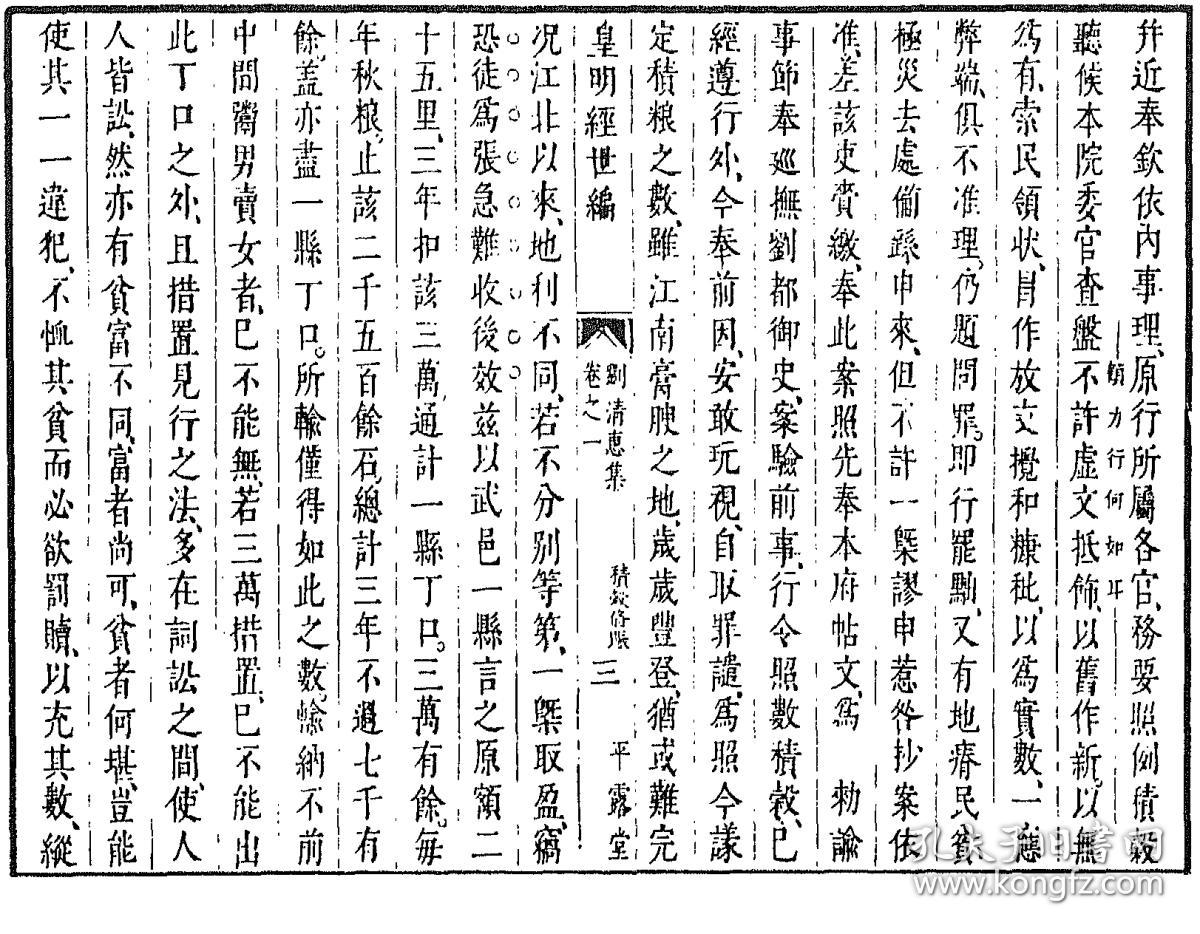 并近奉欽依內事理、原行所屬各官、務要照例積穀
力行何如耳
聽候本院委官查盤不許虛文抵飾、以舊作新。以無
為有、索民領狀、自作放支攪和糠秕、以為實數、一應
弊端、俱不准理。仍題問罪。即行罷黜、又有地瘠民貧
極災去處備蹊申來、但不許一槩謬申惹咎抄案依
准、差該吏賫繳、奉此案照先奉本府帖文、為 勑諭
事節奉巡撫劉都御史、案驗前事、行令照數積穀、已
經遵行外、今奉前因、安敢玩視、自取罪譴、為照今議
定積粮之數、雖江南膏腴之地、歲歲豐登、猶或難完
皇明經世編
劉清惠集
卷之一
積穀
三
平露堂
况江北以來、地利不同、若不分别等第、一槩取盈、竊
恐徒為張急難收後效茲以武邑一縣言之原額二
十五里、三年扣該三萬、通計一縣丁口。三萬有餘。每
年秋粮、止該二千五百餘石、總計三年不過七千有
餘、盖亦盡一縣丁口。所輸僅得如此之數、輸納不前
中間鬻男賣女者、已不能無、若三萬措置、已不能出
此丁口之外、且措置見行之法、多在詞訟之間、使人
人皆訟、然亦有貧富不同、富者尚可、貧者何堪、豈能
使其一一違犯、不恤其貧而必欲罰贖、以充其數、縱
孔夫子旧书网
www.kongfz.com